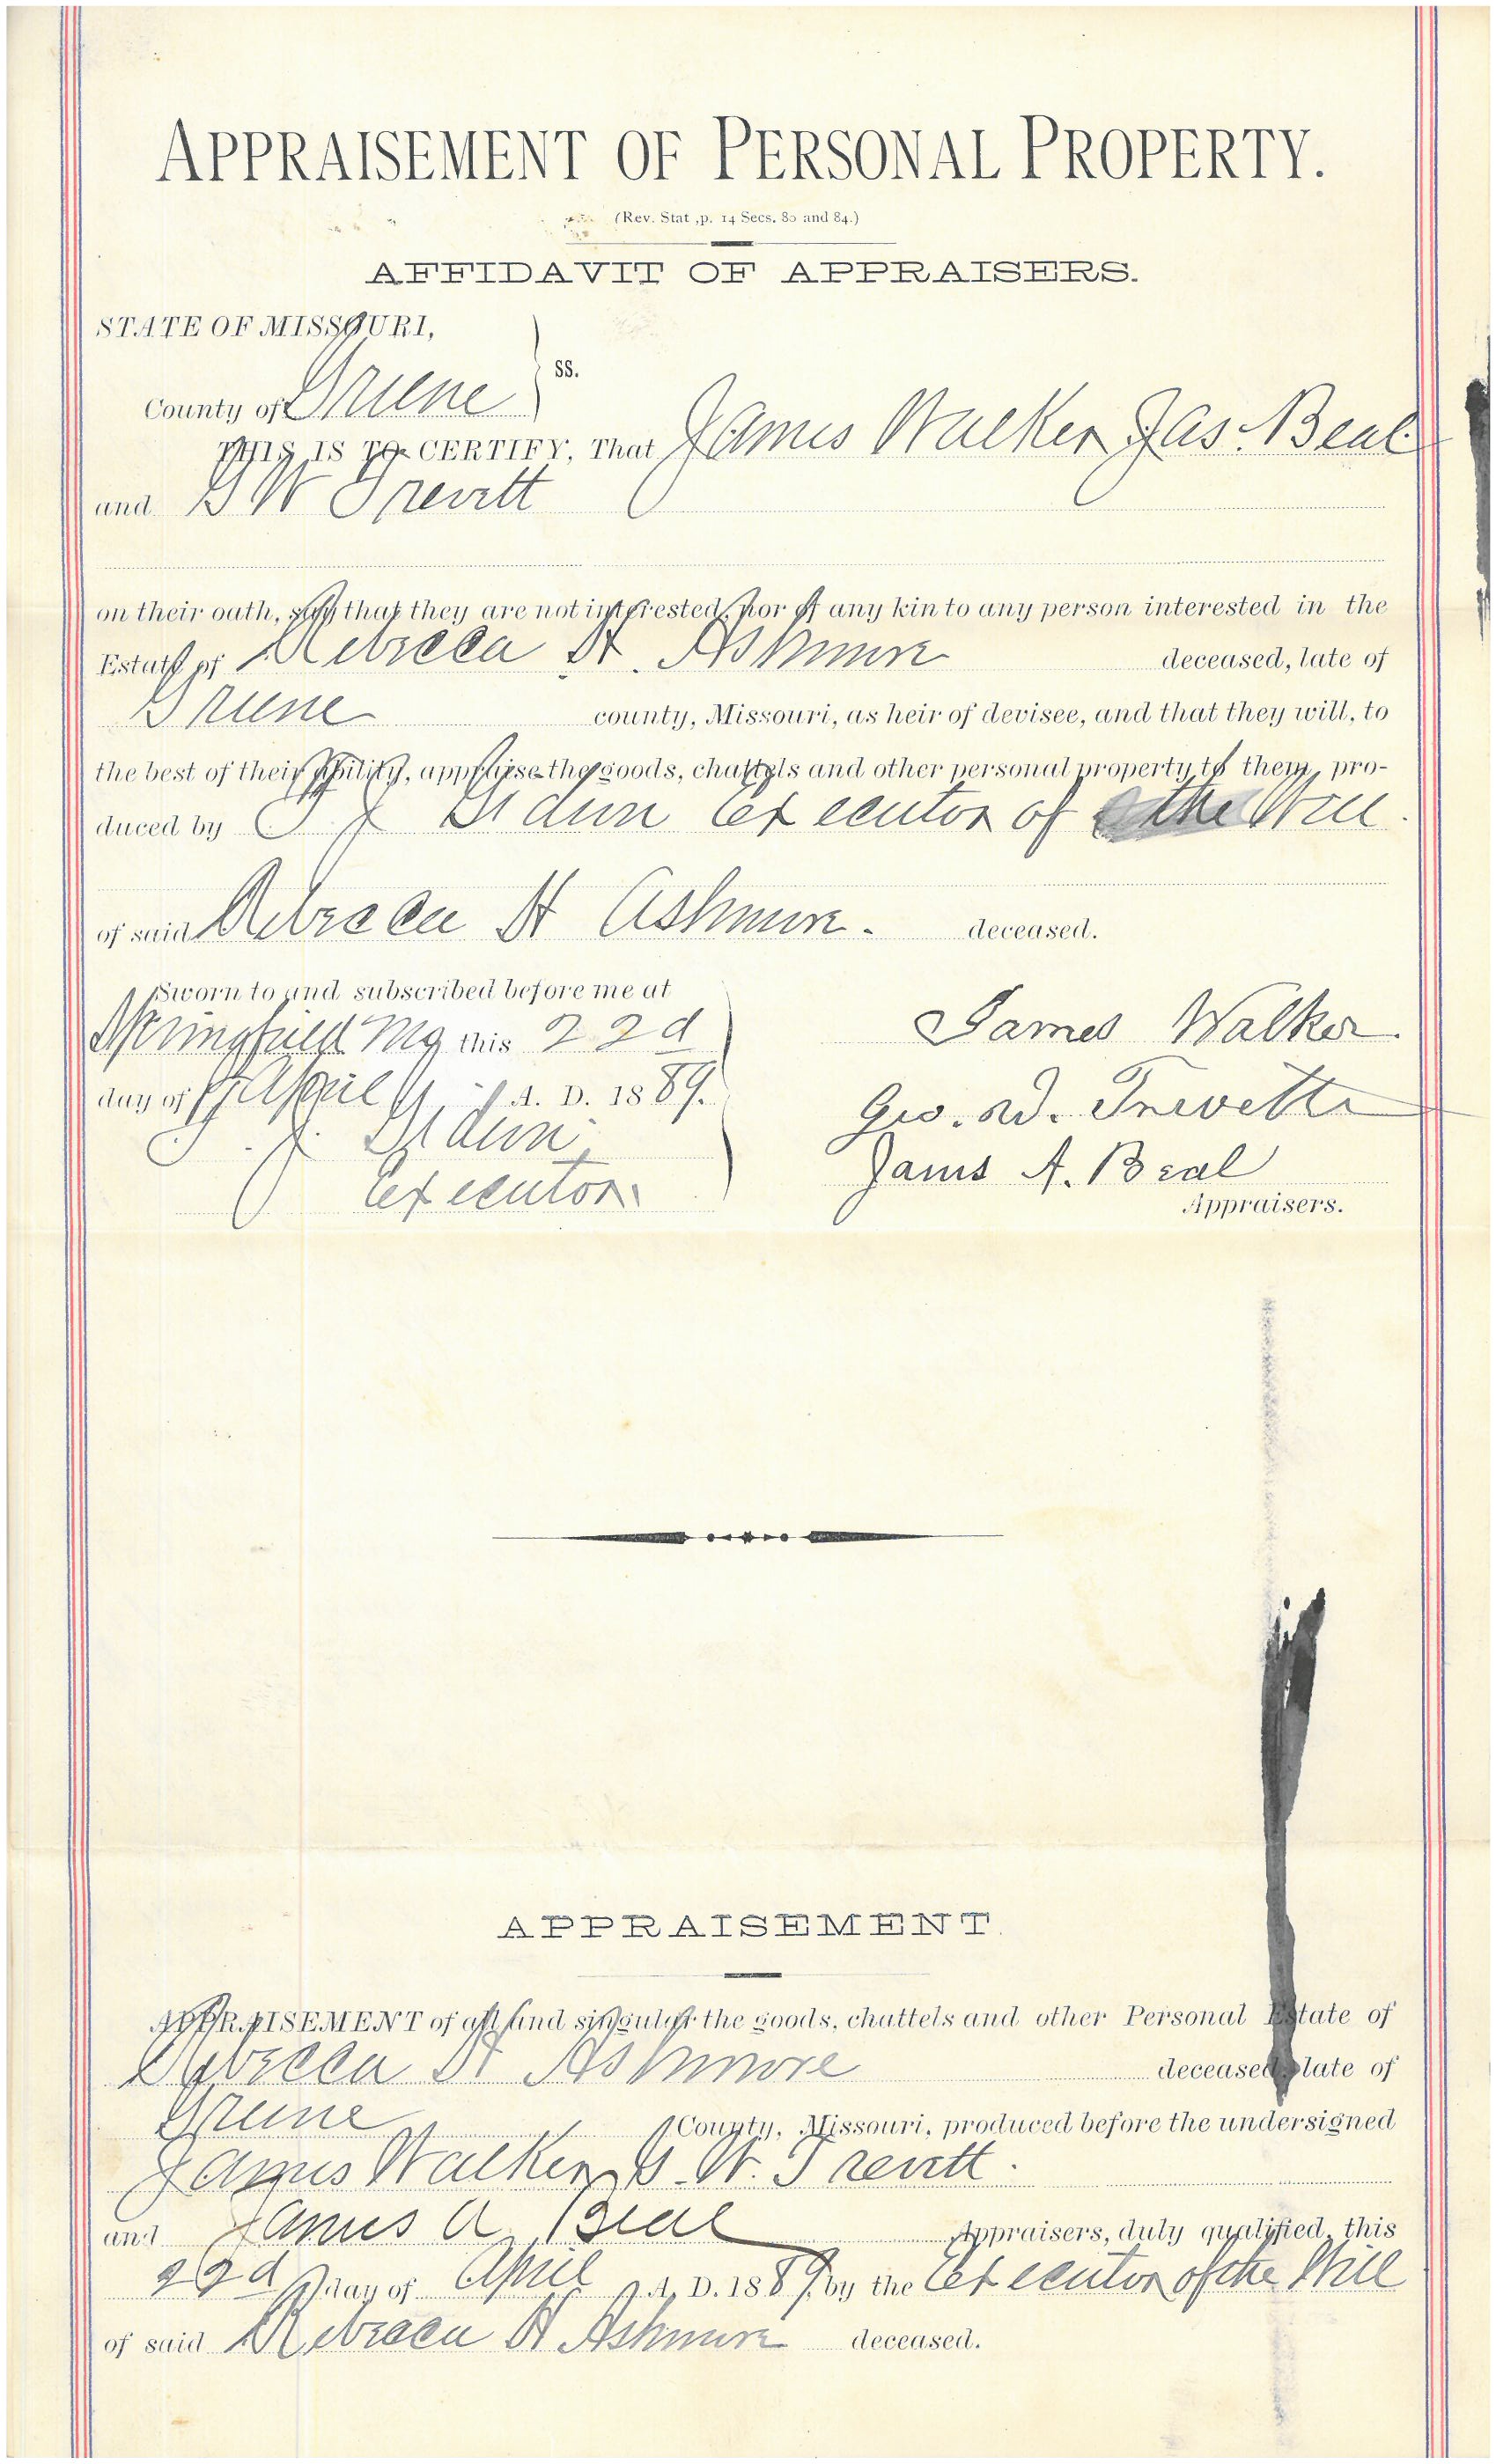 APPRAISEMENT OF PERSONAL PROPERTY.
(Rev. Stat ,p. 14 Secs. 80 and 84.)
AFFIDAVIT OF APPRAISERS.
STATE OF MISSOURI,
ss.
County of Greene
THIS IS TO CERTIFY, That James Walker Jas. Beal
and G W Trevitt
on their oath, say that they are not interested, nor of any kin to any person interested in the
Estate of Rebecca H. Ashmore deceased, late of
Greene county, Missouri, as heir of devisee, and that they will, to
the best of their ability, appraise the goods, chattels and other personal property to them, pro-
duced by T J Executor of the Will.
of said Rebecca H Ashmore. deceased.
Sworn to and subscribed before me at
Springfield Mo this 22d
day of April A. D. 1889.
T. J.
Executor
James Walker.
Geo. W. Trevitt
James A. Beal
Appraisers.
APPRAISEMENT.
APPRAISEMENT of all and singular the goods, chattels and other Personal Estate of
Rebecca H Ashmore deceased, late of
Greene County, Missouri, produced before the undersigned
James Walker, G. W. Trevitt.
and James A. Beal Appraisers, duly qualified, this
22d day of April A. D. 1889, by the Executor of the Will
of said Rebecca H Ashmore deceased.